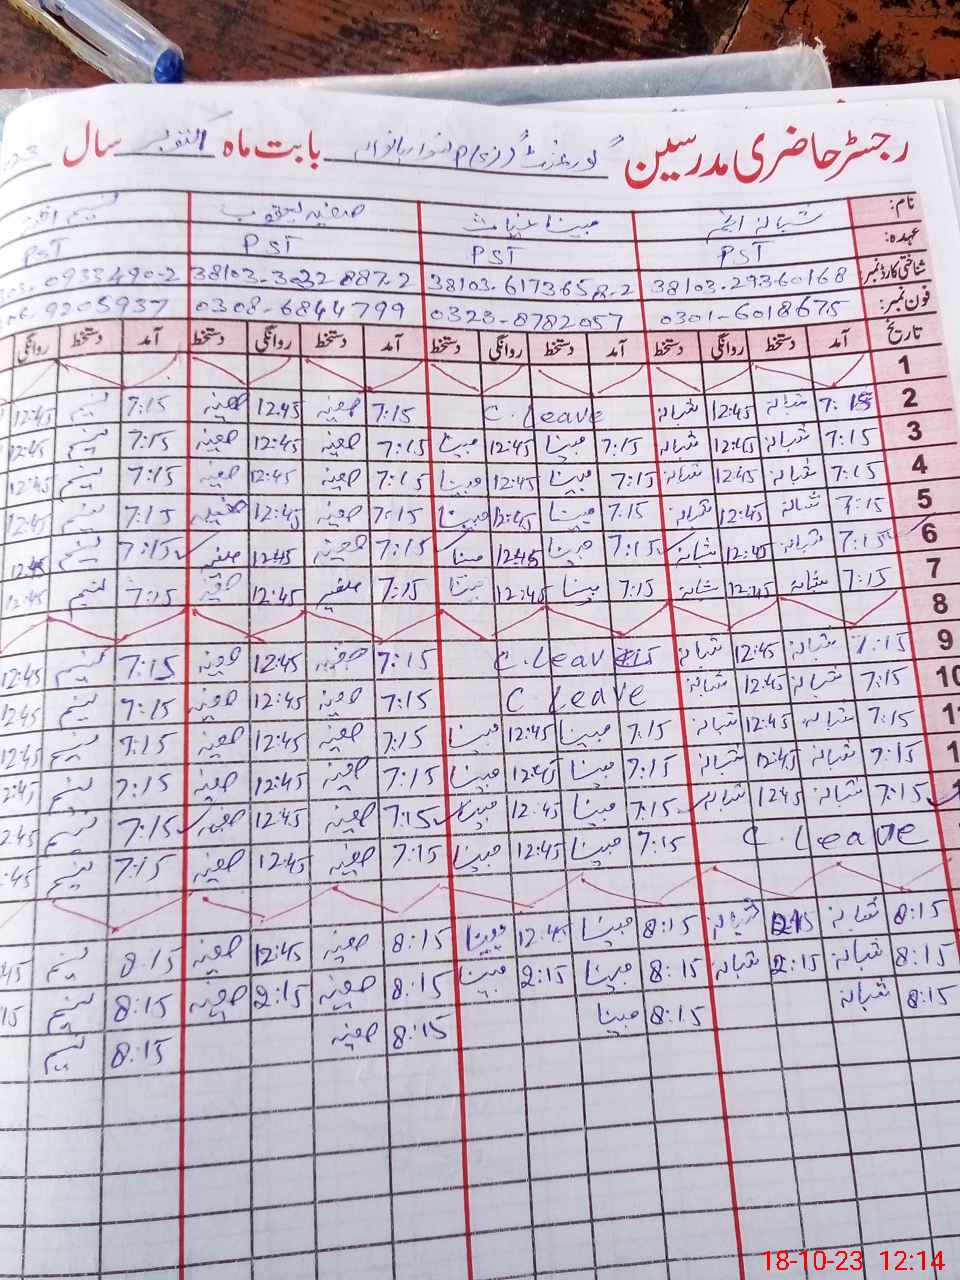 رجسٹر حاضری مدرسین گورنمنٹ بابت ماہ اکتوبر سال
نام: شبانہ مبینا صفیہ یعقوب
عہدہ: PST PST PST PST
شناختی کارڈ نمبر: 38103-617365 38103-3022-887-2 0933490-2
فون نمبر: 0301-6018675 0323-8782057 0308-6844799 9205937
تاریخ آمد دستخط روانگی دستخط آمد دستخط روانگی دستخط آمد دستخط روانگی دستخط آمد دستخط روانگی
1
2 7:15 شبانہ 12:45 شبانہ C. Leave 7:15 صفیہ 12:45 صفیہ 7:15 نسیم 12:45
3 7:15 شبانہ 12:45 شبانہ 7:15 مبینا 12:45 مبینا 7:15 صفیہ 12:45 صفیہ 7:15 نسیم 12:45
4 7:15 شبانہ 12:45 شبانہ 7:15 مبینا 12:45 مبینا 7:15 صفیہ 12:45 صفیہ 7:15 نسیم 12:45
5 7:15 شبانہ 12:45 شبانہ 7:15 مبینا 12:45 مبینا 7:15 صفیہ 12:45 صفیہ 7:15 نسیم 12:45
6 7:15 شبانہ 12:45 شبانہ 7:15 مبینا 12:45 مبینا 7:15 صفیہ 12:45 صفیہ 7:15 نسیم 12:45
7 7:15 شبانہ 12:45 شبانہ 7:15 مبینا 12:45 مبینا 7:15 صفیہ 12:45 صفیہ 7:15 نسیم 12:45
8
9 7:15 شبانہ 12:45 شبانہ C. Leave 7:15 صفیہ 12:45 صفیہ 7:15 نسیم 12:45
10 7:15 شبانہ 12:45 شبانہ C Leave 7:15 صفیہ 12:45 صفیہ 7:15 نسیم 12:45
1 7:15 شبانہ 12:45 شبانہ 7:15 مبینا 12:45 مبینا 7:15 صفیہ 12:45 صفیہ 7:15 نسیم 12:45
1 7:15 شبانہ 12:45 شبانہ 7:15 مبینا 12:45 مبینا 7:15 صفیہ 12:45 صفیہ 7:15 نسیم 2:45
7:15 شبانہ 1245 شبانہ 7:15 مبینا 12:45 مبینا 7:15 صفیہ 12:45 صفیہ 7:15 نسیم 2:45
C. Leave 7:15 مبینا 12:45 مبینا 7:15 صفیہ 12:45 صفیہ 7:15 نسیم :45
8:15 شبانہ شبانہ 8:15 مبینا 12:45 مبینا 8:15 صفیہ 12:45 صفیہ 8:15 نسیم 45
8:15 شبانہ 2:15 شبانہ 8:15 مبینا 2:15 مبینا 8:15 صفیہ 2:15 صفیہ 8:15 نسیم 15
8:15 شبانہ 8:15 مبینا 8:15 صفیہ 8:15 نسیم
18-10-23 12:14